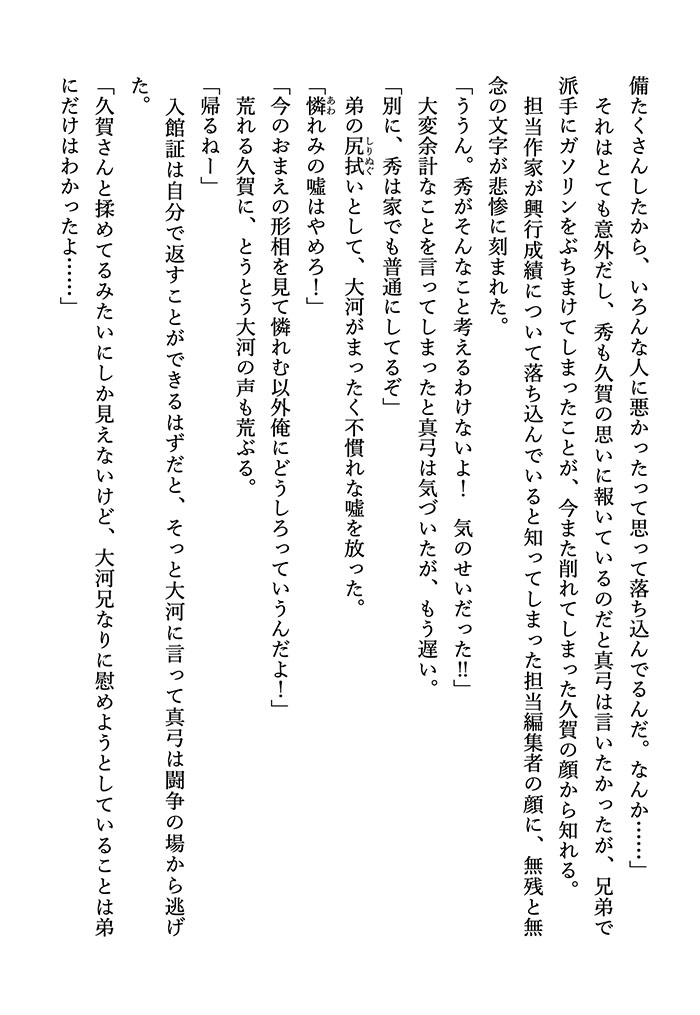 備たくさんしたから、いろんな人に悪かったって思って落ち込んでるんだ。なんか……」
それはとても意外だし、秀も久賀の思いに報いているのだと真弓は言いたかったが、兄弟で
派手にガソリンをぶちまけてしまったことが、今また削れてしまった久賀の顔から知れる。
担当作家が興行成績について落ち込んでいると知ってしまった担当編集者の顔に、無残と無
念の文字が悲惨に刻まれた。
「ううん。秀がそんなこと考えるわけないよ！　気のせいだった‼」
大変余計なことを言ってしまったと真弓は気づいたが、もう遅い。
「別に、秀は家でも普通にしてるぞ」
弟の尻拭いとして、大河がまったく不慣れな嘘を放った。
「憐れみの嘘はやめろ！」
「今のおまえの形相を見て憐れむ以外俺にどうしろっていうんだよ！」
荒れる久賀に、とうとう大河の声も荒ぶる。
「帰るねー」
入館証は自分で返すことができるはずだと、そっと大河に言って真弓は闘争の場から逃げ
た。
「久賀さんと揉めてるみたいにしか見えないけど、大河兄なりに慰めようとしていることは弟
にだけはわかったよ……」